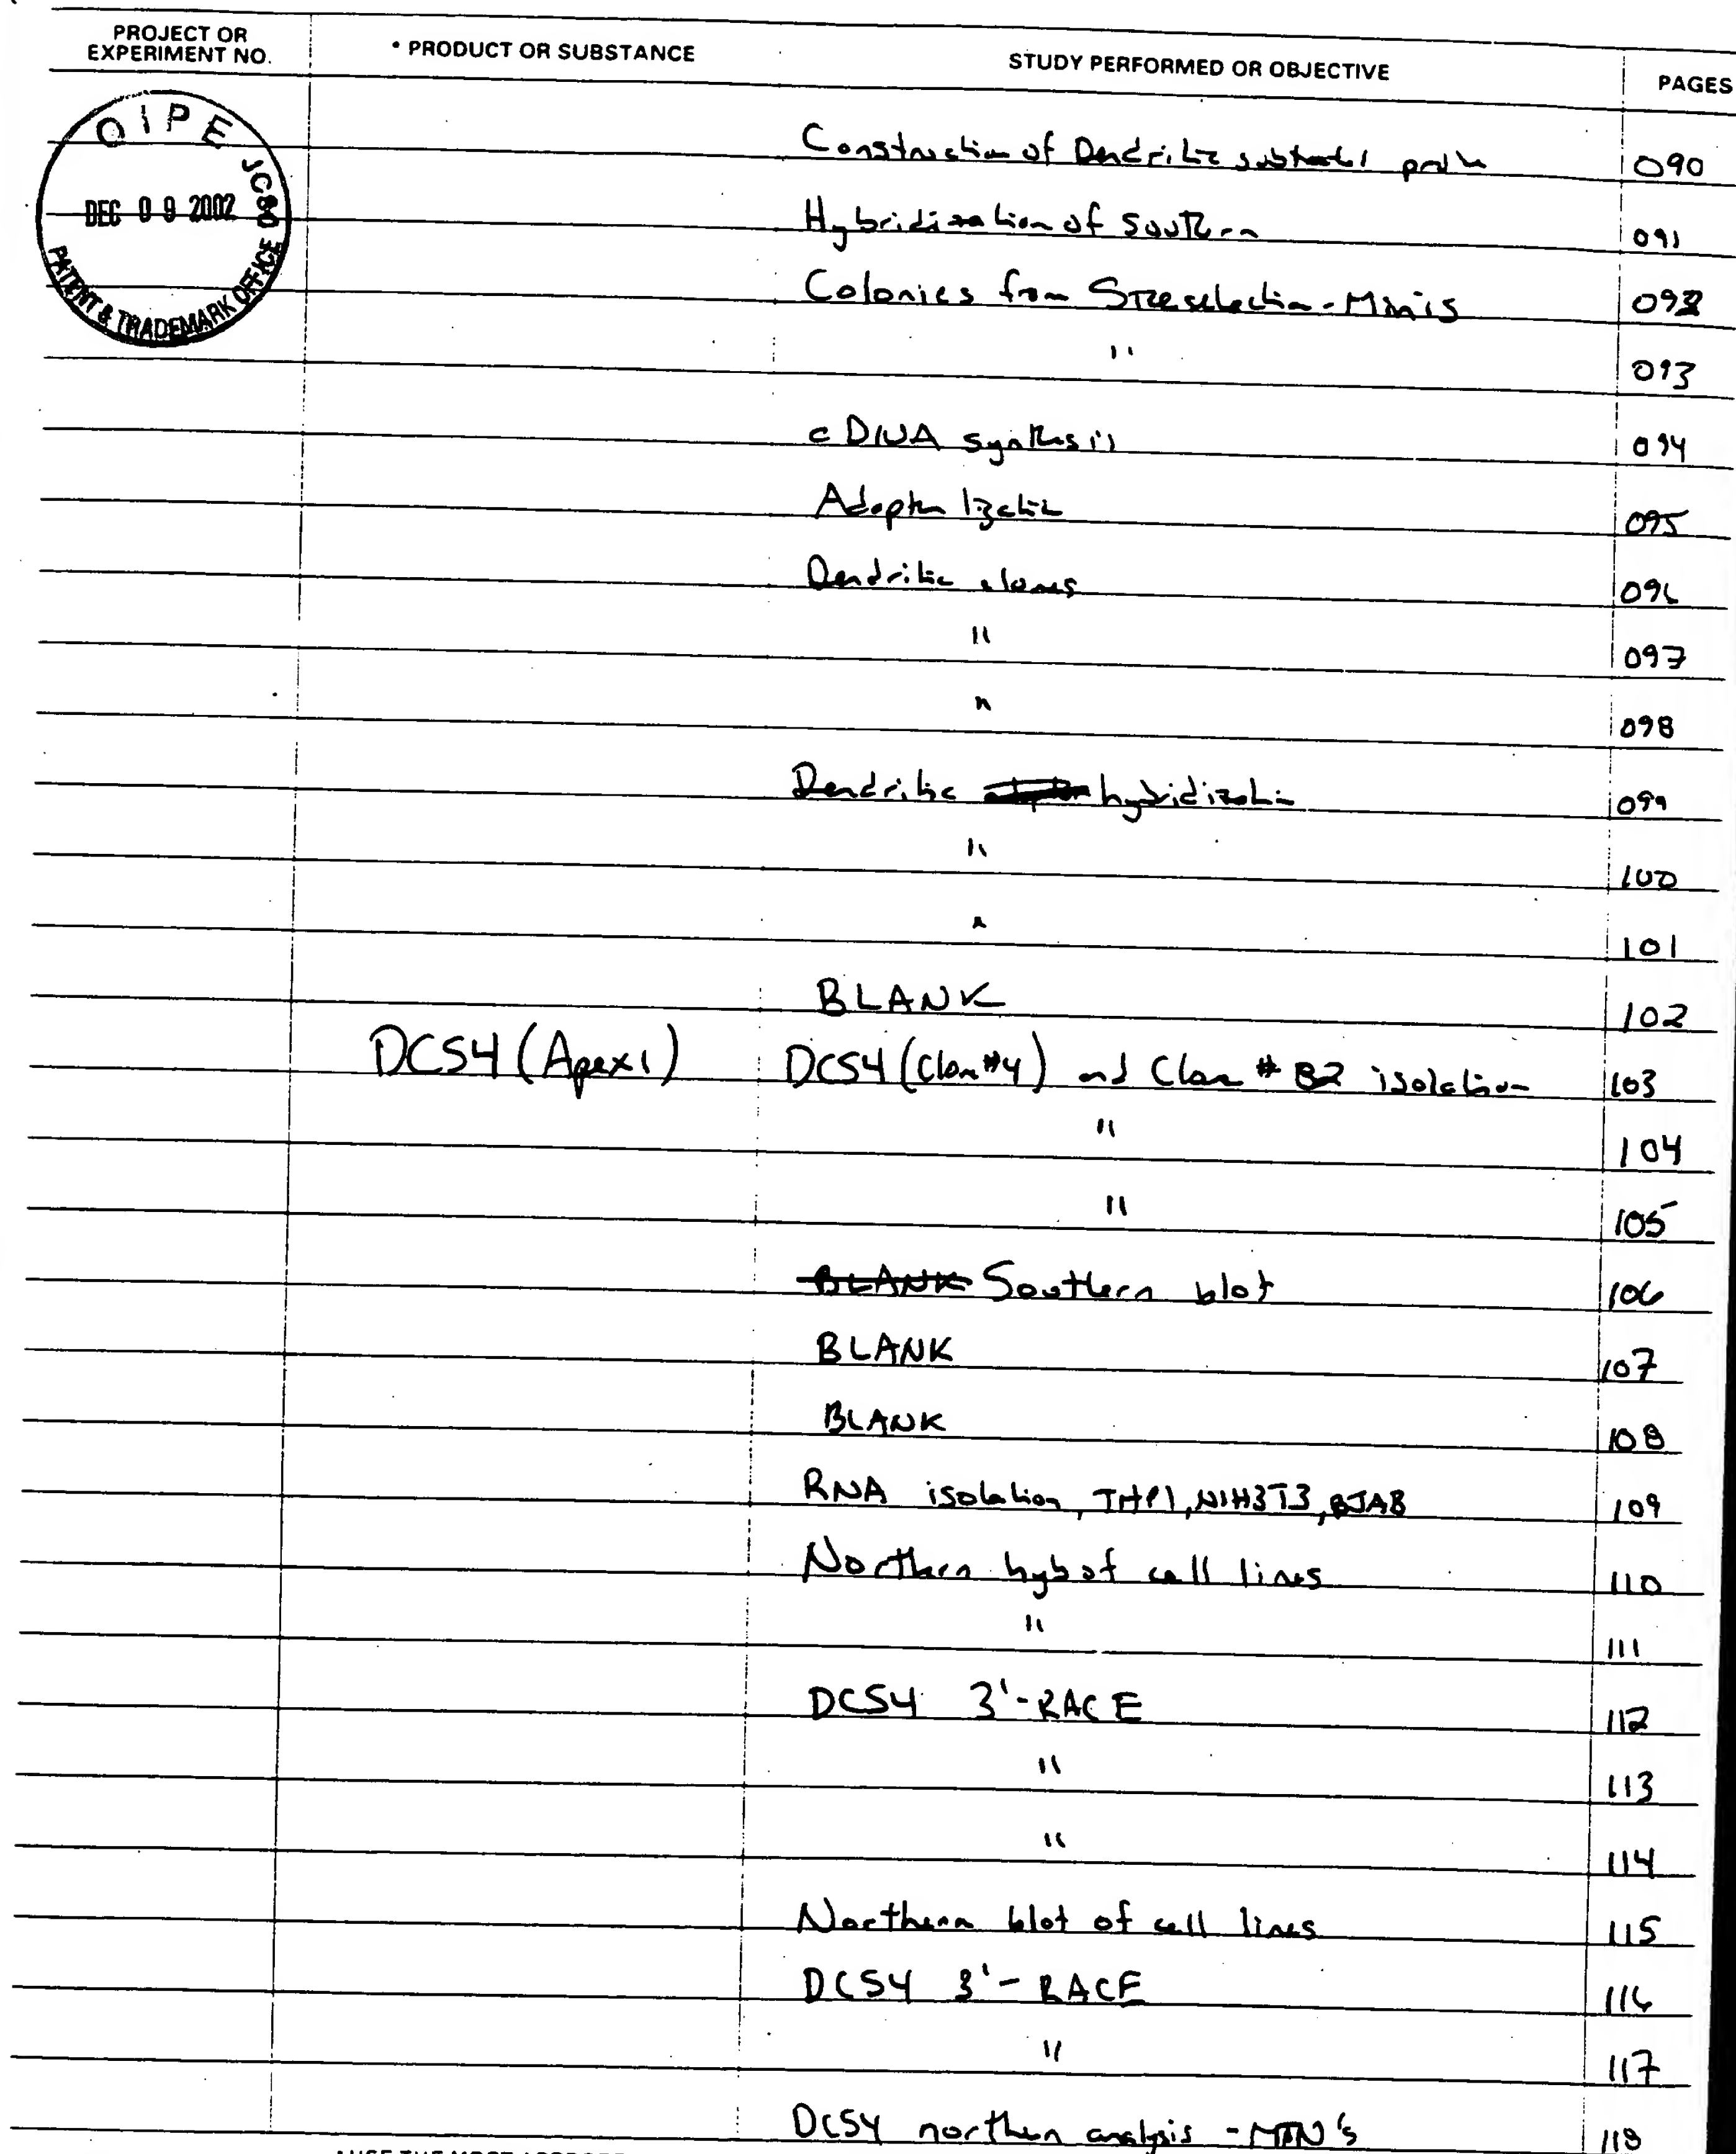 PROJECT OR EXPERIMENT NO. • PRODUCT OR SUBSTANCE STUDY PERFORMED OR OBJECTIVE PAGES
OIPE JC80
DEC 09 2002
PATENT & TRADEMARK OFFICE
Construction of Dendritic 090
Hybridization of Southern 091
Colonies from Size selection - Minis 092
" 093
cDNA synthesis 094
095
Dendritic clones 096
" 097
" 098
Dendritic hybridization 099
" 100
" 101
BLANK 102
DCS4 (Apex1) DCS4 (Clone #4) and Clone # B2 isolation 103
" 104
" 105
BLANK Southern blot 106
BLANK 107
BLANK 108
RNA isolation, THP1, NIH3T3, BJAB 109
Northern hyb of cell lines 110
" 111
DCS4 3'-RACE 112
" 113
" 114
Northern blot of cell lines 115
DCS4 3'-RACE 116
" 117
DCS4 northern analysis - MTN's 118